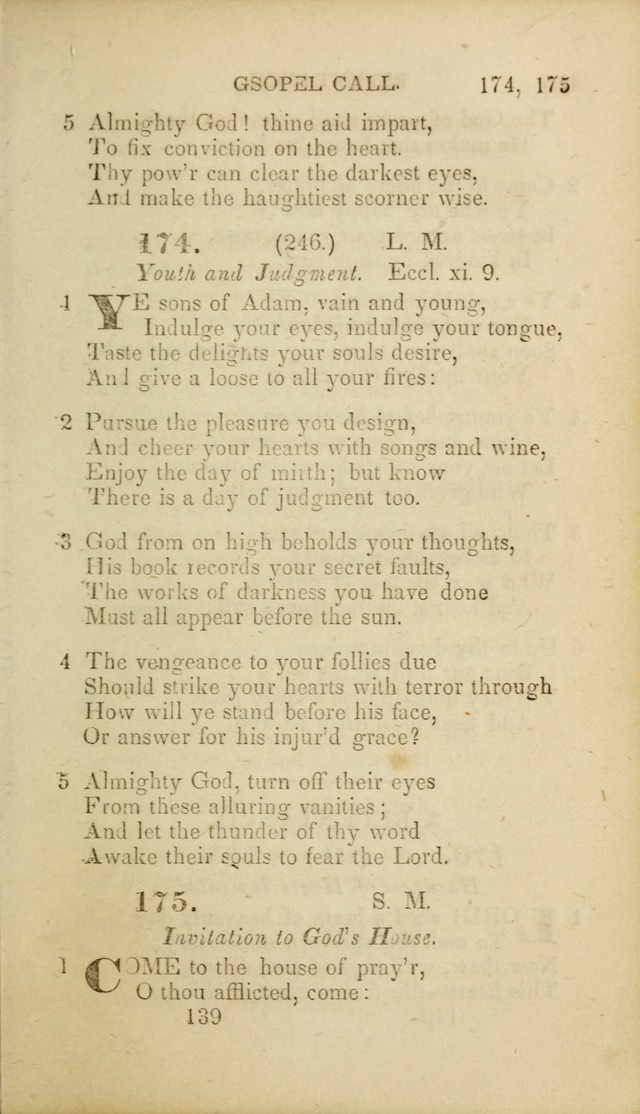 GSOPEL CALL. 174, 175
5 Almighty God! thine aid impart,
To fix conviction on the heart.
Thy pow'r can clear the darkest eyes,
And make the haughtiest scorner wise.
174. (246.) L. M.
Youth and Judgment. Eccl. xi. 9.
1 YE sons of Adam, vain and young,
Indulge your eyes, indulge your tongue,
Taste the delights your souls desire,
And give a loose to all your fires:
2 Pursue the pleasure you design,
And cheer your hearts with songs and wine,
Enjoy the day of mirth; but know
There is a day of judgment too.
3 God from on high beholds your thoughts,
His book records your secret faults,
The works of darkness you have done
Must all appear before the sun.
4 The vengeance to your follies due
Should strike your hearts with terror through
How will ye stand before his face,
Or answer for his injur'd grace?
5 Almighty God, turn off their eyes
From these alluring vanities;
And let the thunder of thy word
Awake their souls to fear the Lord.
175. S. M.
Invitation to God's House.
1 COME to the house of pray'r,
O thou afflicted, come:
139